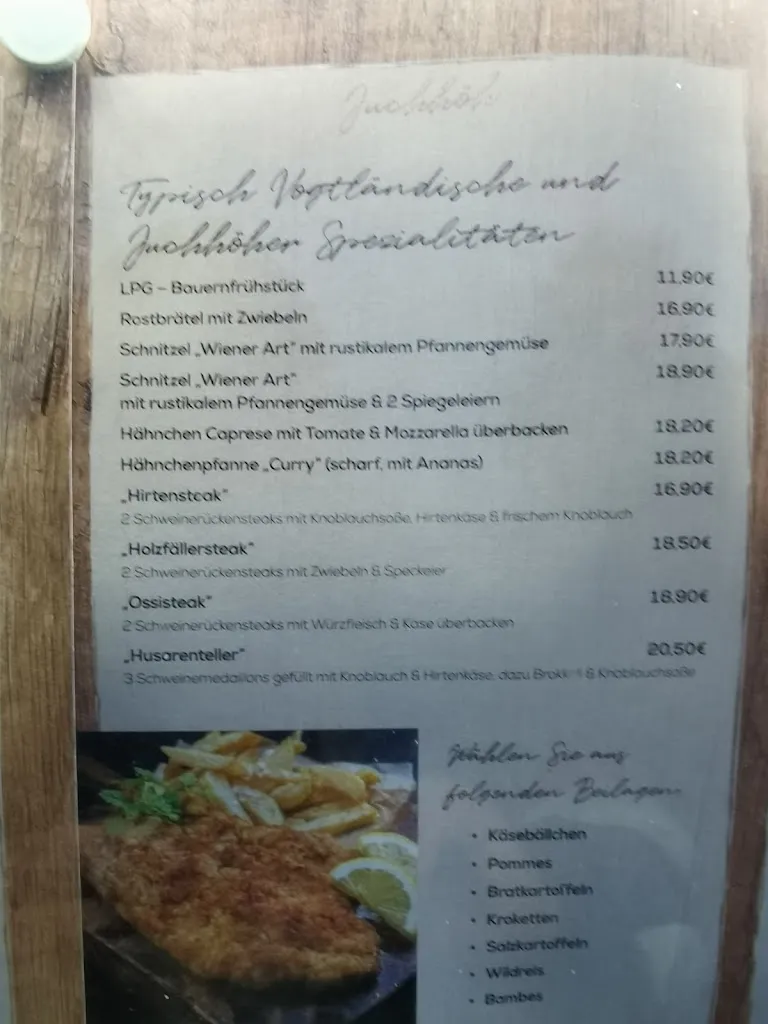 Juchhöh
Typisch Vogtländische und
Juchhöher Spezialitäten
LPG – Bauernfrühstück 11,90€
Rostbrätel mit Zwiebeln 16,90€
Schnitzel „Wiener Art" mit rustikalem Pfannengemüse 17,90€
Schnitzel „Wiener Art" 18,90€
mit rustikalem Pfannengemüse & 2 Spiegeleiern
Hähnchen Caprese mit Tomate & Mozzarella überbacken 18,20€
Hähnchenpfanne „Curry" (scharf, mit Ananas) 18,20€
„Hirtensteak" 16,90€
2 Schweinerückensteaks mit Knoblauchsoße, Hirtenkäse & frischem Knoblauch
„Holzfällersteak" 18,50€
2 Schweinerückensteaks mit Zwiebeln & Speckeier
„Ossisteak" 18,90€
2 Schweinerückensteaks mit Würzfleisch & Käse überbacken
„Husarenteller" 20,50€
3 Schweinemedaillons gefüllt mit Knoblauch & Hirtenkäse, dazu Brokkoli & Knoblauchsoße
Wählen Sie aus
folgenden Beilagen:
• Käsebällchen
• Pommes
• Bratkartoffeln
• Kroketten
• Salzkartoffeln
• Wildreis
• Bambes